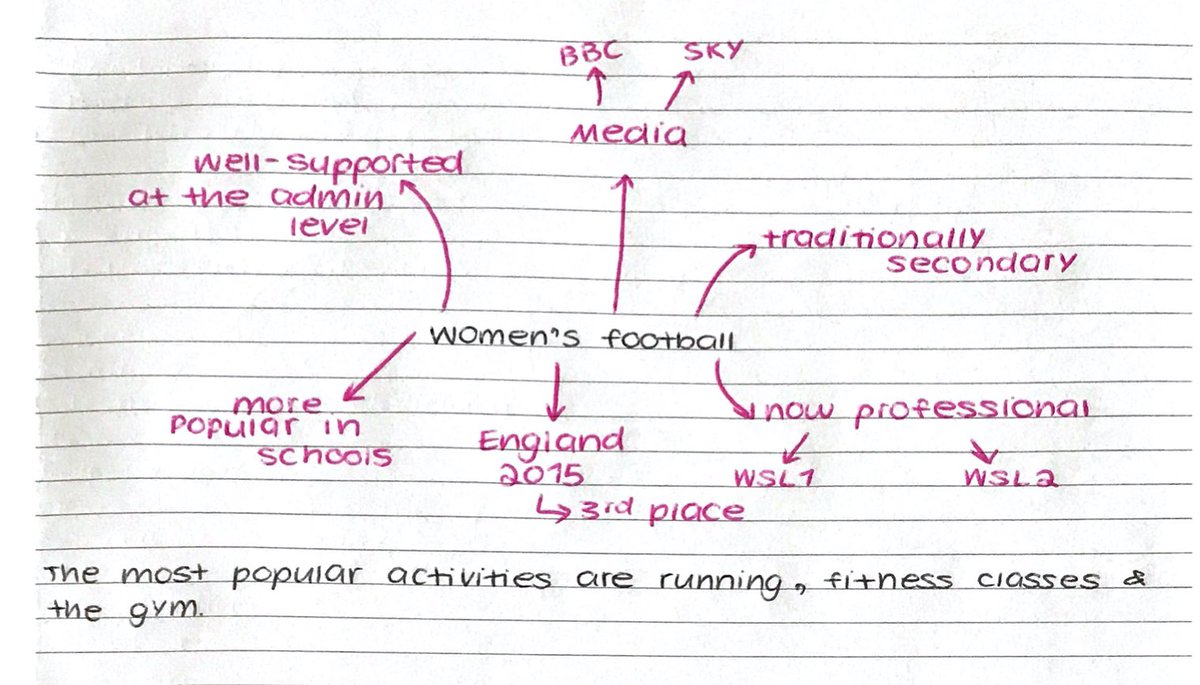 BBC SKY
Media
well-supported
at the admin
level
traditionally
secondary
women's football
more
popular in
schools
now professional
England
2015
WSL1 WSL2
↳ 3rd place
The most popular activities are running, fitness classes &
the gym.